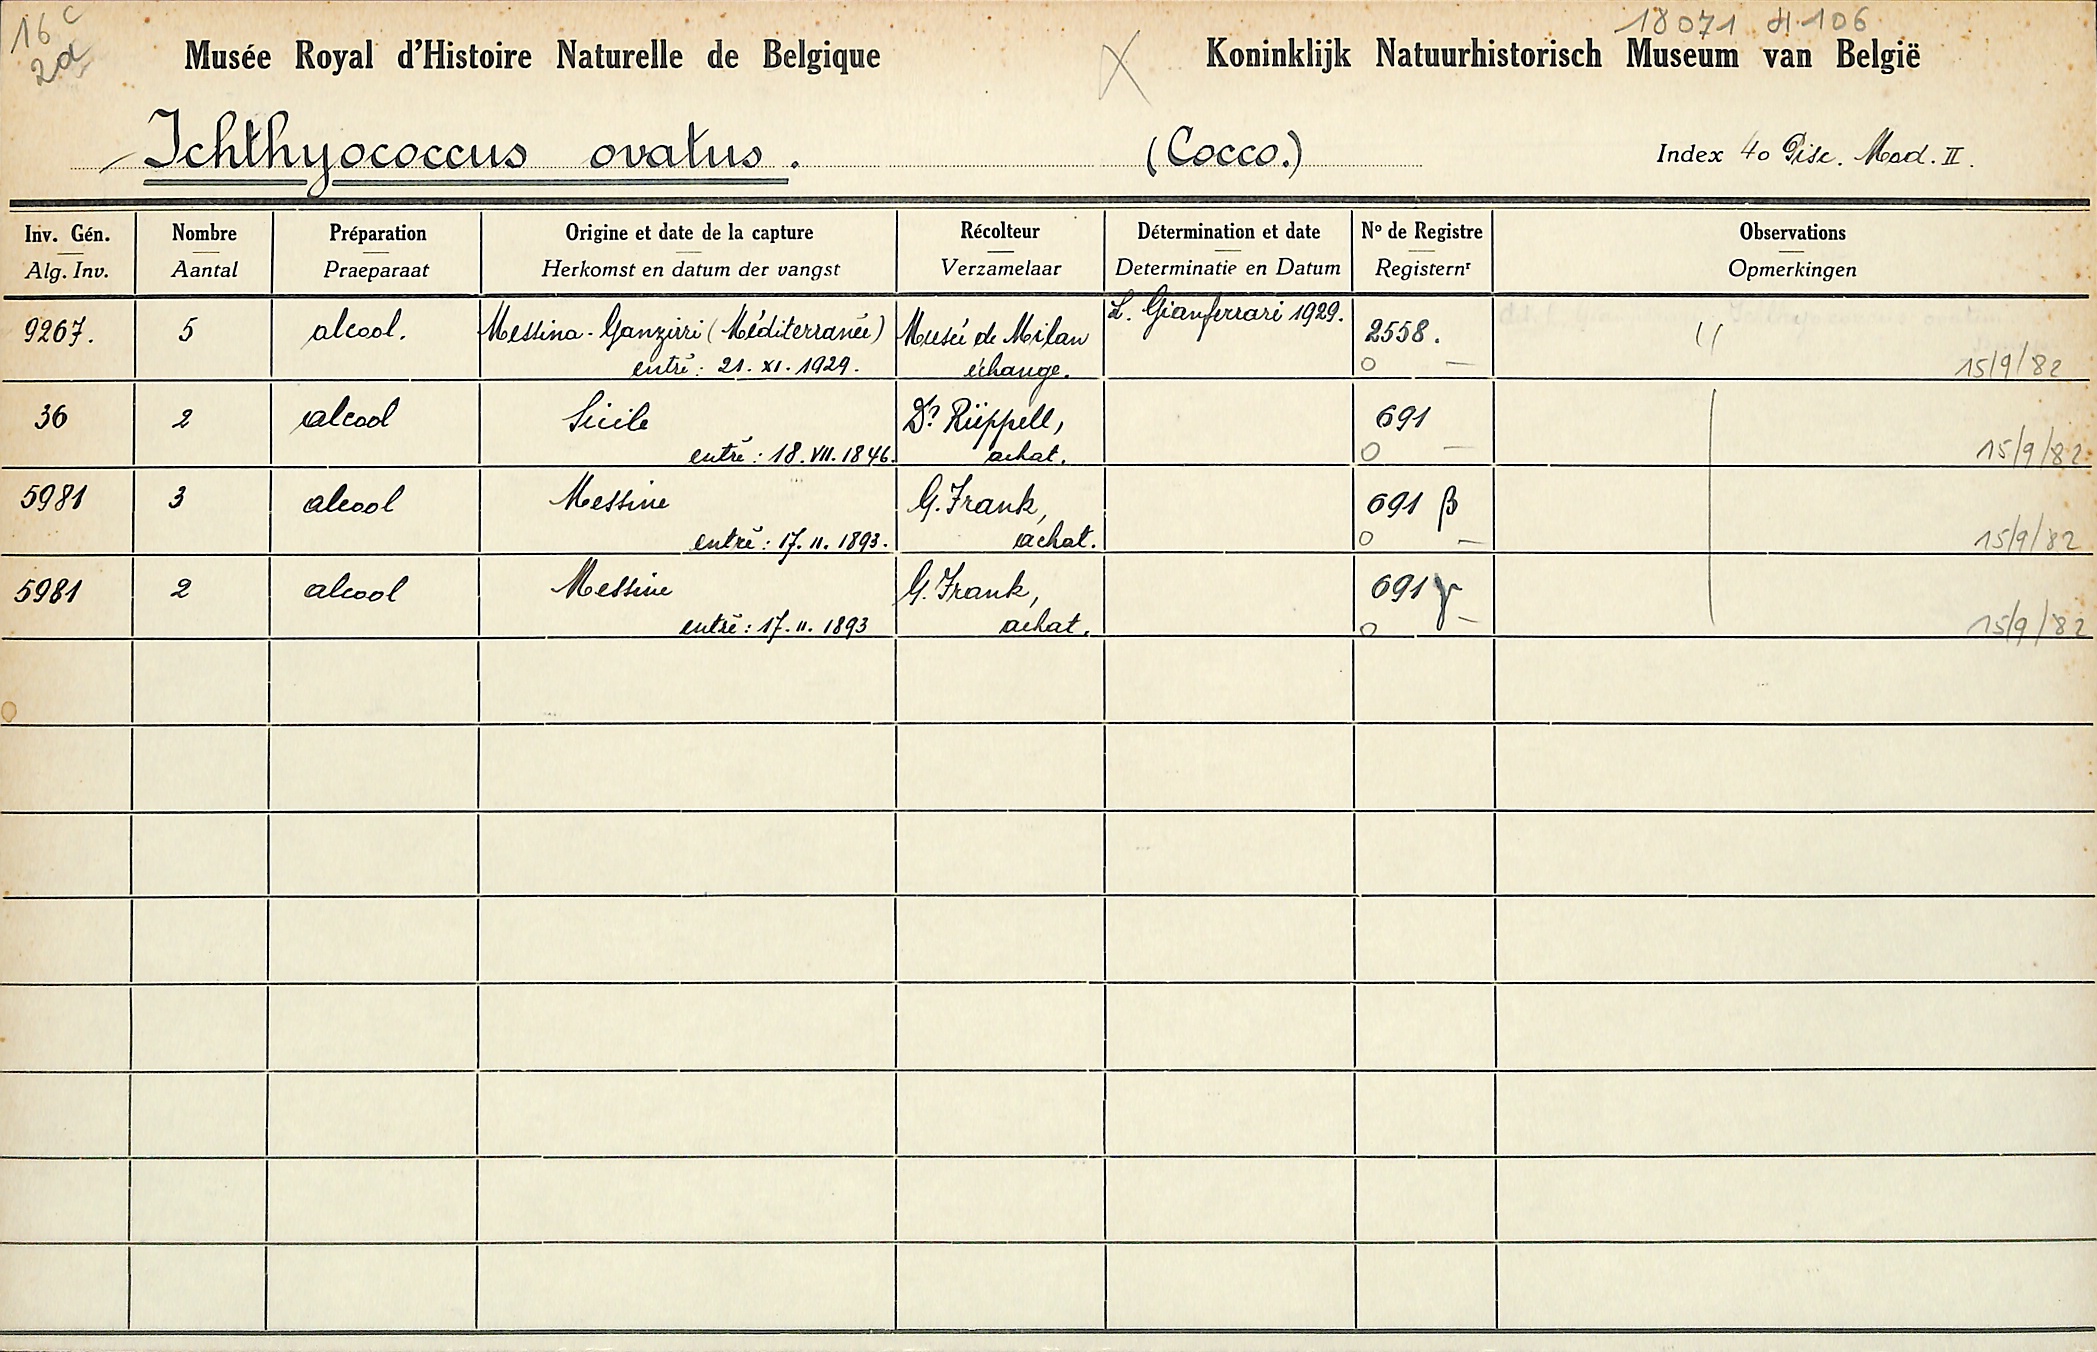 16 c
2a
18071 H.106
Musée Royal d'Histoire Naturelle de Belgique
X
Koninklijk Natuurhistorisch Museum van België
Ichthyococcus ovatus. (Cocco.)
Index 40 Pisc. Mod. II.
Inv. Gén. Nombre Préparation Origine et date de la capture Récolteur Détermination et date Nº de Registre Observations
Alg. Inv. Aantal Praeparaat Herkomst en datum der vangst Verzamelaar Determinatie en Datum Registernr Opmerkingen
9267. 5 alcool. Messina-Ganzirri (Méditerranée) Musée de Milan L. Gianferrari 1929. 2558.
entré: 21. XI. 1929. échange. O — 15/9/82
36 2 alcool Sicile Dr Rüppell, 691
entré: 18. VII. 1846. achat. O — 15/9/82
5981 3 alcool Messine G. Frank, 691 β
entré: 17. II. 1893. achat. O — 15/9/82
5981 2 alcool Messine G. Frank, 691 γ
entré: 17. II. 1893 achat. O — 15/9/82